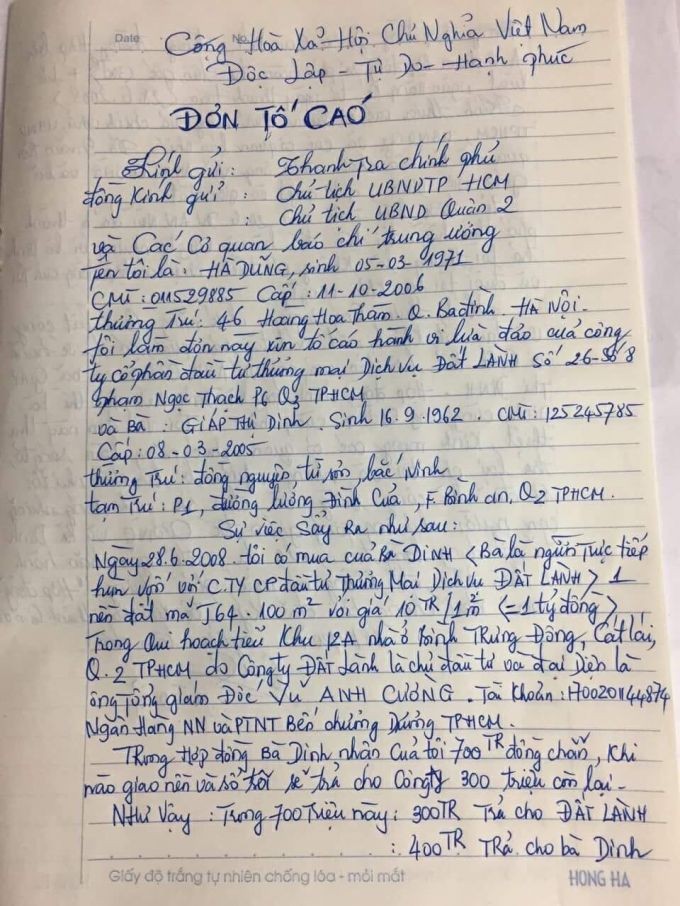 Date No.
Cộng Hoà Xả Hội Chủ Nghỉa Việt Nam
Độc Lập - Tự Do - Hạnh phúc
ĐƠN TỐ CÁO
Kính gửi : Thanh Tra chính phủ
đồng Kính gửi : Chủ tịch UBNDTP HCM
: Chủ tịch UBND Quận 2
và Các Cơ quan báo chí trung ương
Tên tôi là : HÀ DŨNG, sinh 05-03-1971
CMT : 011529885 Cấp : 11-10-2006
thường Trú : 46 Hoàng Hoa Thám. Q. Ba đình - HÀ NỘI.
tôi làm đơn này xin tố cáo hành vi lừa đảo của công
ty cổ phần đầu tư thương mại Dịch Vụ Đất LÀNH Số 26-36 8
phạm Ngọc Thạch P6 Q3 TPHCM
và Bà : GIÁP THỊ Dinh, Sinh 16.9.1962. CMT : 125245785
Cấp : 08-03-2005
thường Trú : đồng nguyên, từ sơn, bắc Ninh
tạm Trú : P1, đường lương Đình Của, F. Bình an, Q2 TPHCM.
Sự việc Sảy Ra như sau :
Ngày 28.6.2008. tôi có mua của BÀ DINH < Bà là người Trực tiếp
hùn vốn với C.TY CP đầu tư Thương Mai Dịch vu ĐẤT LÀNH > 1
nền đất mã J64. 100 m² với giá 10TR/1m² (=1 tỷ đồng)
Trong Qui hoạch tiểu Khu 12A nhà ở Bình Trưng Đông, Cát lái,
Q.2 TPHCM do Công ty ĐẤT Lành là chủ đầu tư và đại Diện là
ông Tổng giám Đốc VŨ ANH CƯỜNG. Tài Khoản : 1700201144874
Ngân Hàng NN và PTNT Bến chương Dương TPHCM.
Trong Hợp đồng Bà Dinh nhận Của tôi 700TR đồng chẵn, Khi
nào giao nền và sổ tôi sẽ trả cho Công ty 300 triệu còn lại -
NHƯ Vậy : Trong 700 Triệu này : 300TR Trả cho ĐẤT LÀNH
: 400TR TRẢ cho bà Dinh
Giấy độ trắng tự nhiên chống lóa - mỏi mắt HONG HA